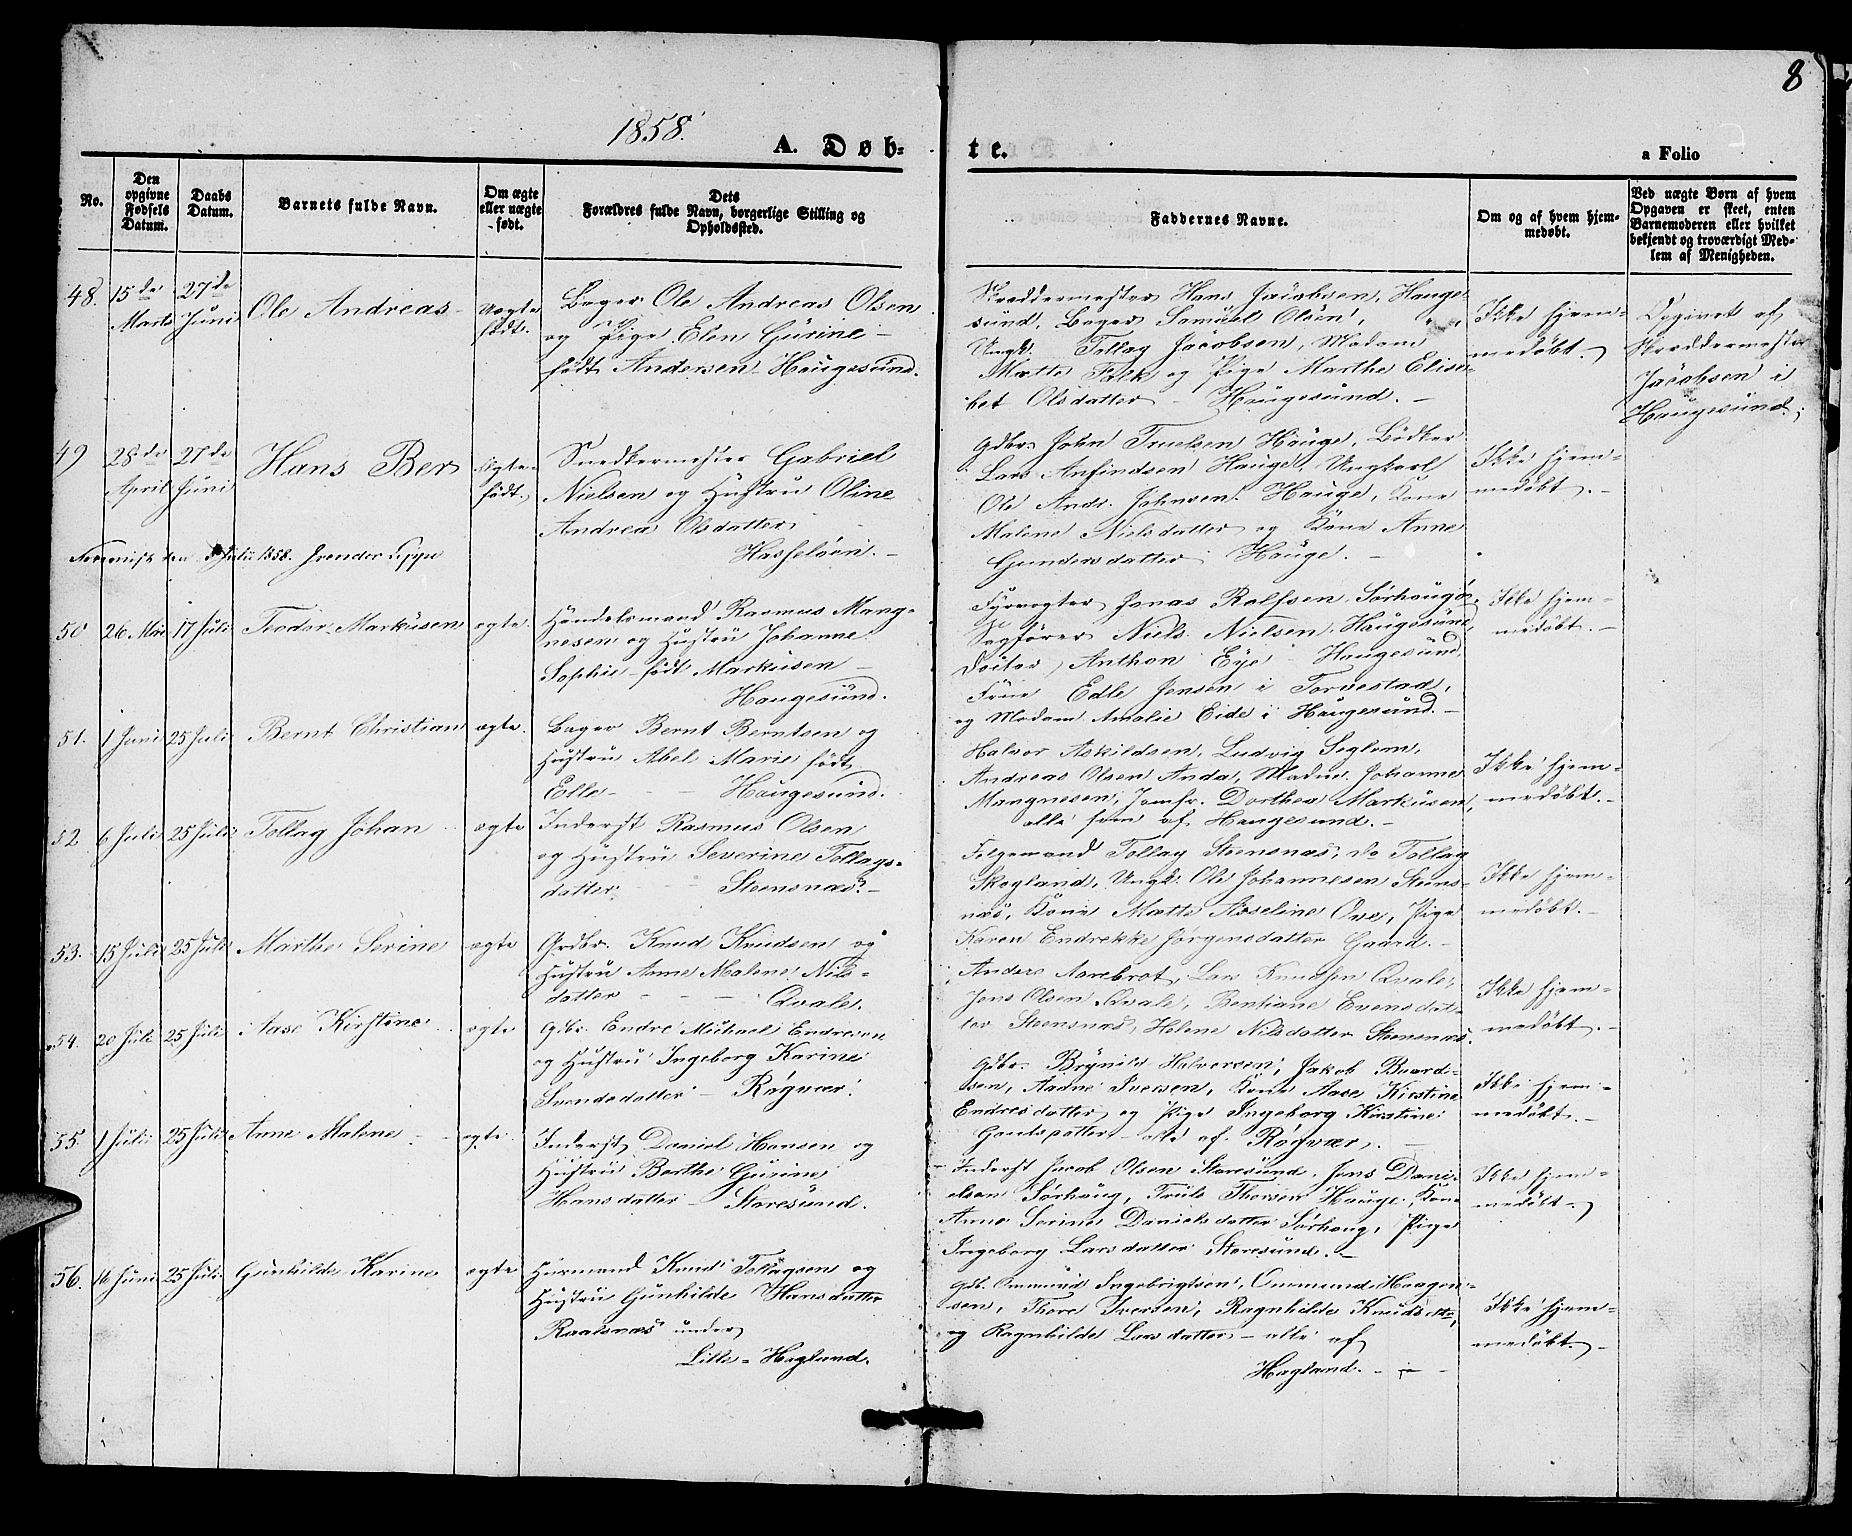 8
1858.
A. Døb-
te.
a Folio
No.
Den opgivne Fødsels Datum.
Daabs Datum.
Barnets fulde Navn.
Om ægte eller uægte født.
Dets Forældres fulde Navn, borgerlige Stilling og Opholdssted.
Faddernes Navne.
Om og af hvem hjemmedøbt.
Ved uægte Børn af hvem Opgaven er skeet, enten Barnemoderen eller hvilket bekjendt og troværdigt Medlem af Menigheden.
48. 15de Marts 27de Juni Ole Andreas Uægte født.
Bager Ole Andreas Olsen
og Pige Elen Gurine
født Andersen Haugesund.
Skreddermester Hans Jacobsen, Hauge-
sund, Bager Samuel Olsen, " "
Ungk. Tollag Jacobsen, Madam
Mætte Falk og Pige Marthe Elisa-
bet Olsdatter - Haugesund. -
Ikke hjem-
medøbt.
Opgivet af
Skreddermester
Jacobsen i
Haugesund.
49 28de April 27de Juni Hans Ber Ægte født.
Snedkermester Gabriel
Nielsen og Hustru Oline
Andrea Olsdatter
Hasseløen. -
Gdbr. John Truelsen Hauge, Bødker
Lars Anfindsen Hauge, Ungkarl
Ole Andr. Johnsen Hauge, Kone
Malene Nielsdatter og Kone Anne
Gundersdatter Hauge. -
Ikke hjem-
medøbt. -
Julii 1858.
50 26 Mai 17 Juli Teodor Markusen ægte.
Handelsmand Rasmus Mang-
nesen og Hustru Johanne
Sophie født Markusen -
Haugesund.
Fyrvogter Jonas Rolfsen Sørhaugø,
Sagfører Niels Nielsen, Haugesund,
Doctor Anthon Eye Haugesund,
Frue Edle Jensen i Torvestad,
og Madam Amalie Eide i Haugesund. -
Ikke hjem-
medøbt. -
51. 1 Juni 25 Juli Bernt Christian ægte.
Bager Bernt Berntsen og
Hustru Abel Marie født
Elle - - Haugesund.
Halvor Askildsen, Ludvig Seglem,
Andreas Olsen Anda, Madm. Johanne
Mangnesen, Jomfr. Dorthea Markusen,
alle fem af Haugesund. -
Ikke hjem-
medøbt. -
52 6 Juli 25 Juli Tollag Johan ægte
Inderst Rasmus Olsen
og Hustru Severine Tollags-
datter - - Steensnæs. -
Følgemand Tollag Steensnæs, do Tollag
Skogland, Ungk. Ole Johannesen Steens-
næs, Kone Mætte Asseline, Pige
Karen Endrekke Jørgensdatter Gaard. -
Ikke hjem-
medøbt. -
53. 15 Juli 25 Juli Marthe Serine ægte
Grdbr. Knud Knudsen og
Hustru Anne Malene Nils-
datter - - - Qvale.
Anders Aarebrot, Lars Knudsen Qvale,
Jens Olsen Qvale, Bentiane Evensdat-
ter Steensnæs, Helene Nilsdatter Steensnæs.
Ikke hjem-
medøbt. -
54. 20 Juli 25 Juli Aase Kirstine ægte
Gdbr. Endre Michael Endresen
og Hustru Ingeborg Karine
Svendsdatter - Røgvær.
Gdbr. Brynild Halversen, Jakob Baard-
sen, Aadne Iversen, Kone Aase Kirstine
Endresdatter og Pige Ingeborg Kirstine
Gautsdatter - alle af Røgvær. -
Ikke hjem-
medøbt. -
55 1 Julii 25 Juli Anne Malene - ægte.
Inderst Daniel Hansen og
Hustru Berthe Gurine
Hansdatter - Staresund.
Inderst Jacob Olsen Staresund, Jens Dani-
elsen Sørhaug, Truls Thorsen Hauge, Kone
Anne Serine Danielsdatter Sørhaug, Pige
Ingeborg Larsdatter Staresund. -
Ikke hjem-
medøbt. -
56. 16 Juni 25 Juli Gunhilde Karine ægte
Huusmand Knud Tollagsen og
Hustru Gunhilde Hansdatter
Raalsnæs under
Lille-Hagland.
Gdb. Ommund Ingebrigtsen, Ommund Haagen-
sen, Thore Iversen, Ragnhilde Knudsdtr,
og Ragnhilde Larsdatter - alle af
Hagland. - -
Ikke hjem-
medøbt. -